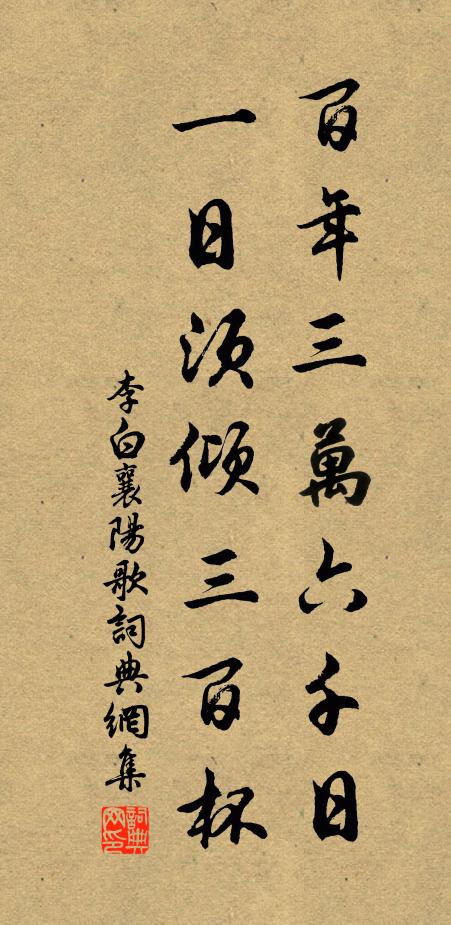 百年三萬六千日
一日須傾三百杯
李白襄陽歌詞典網集
詞典
网印